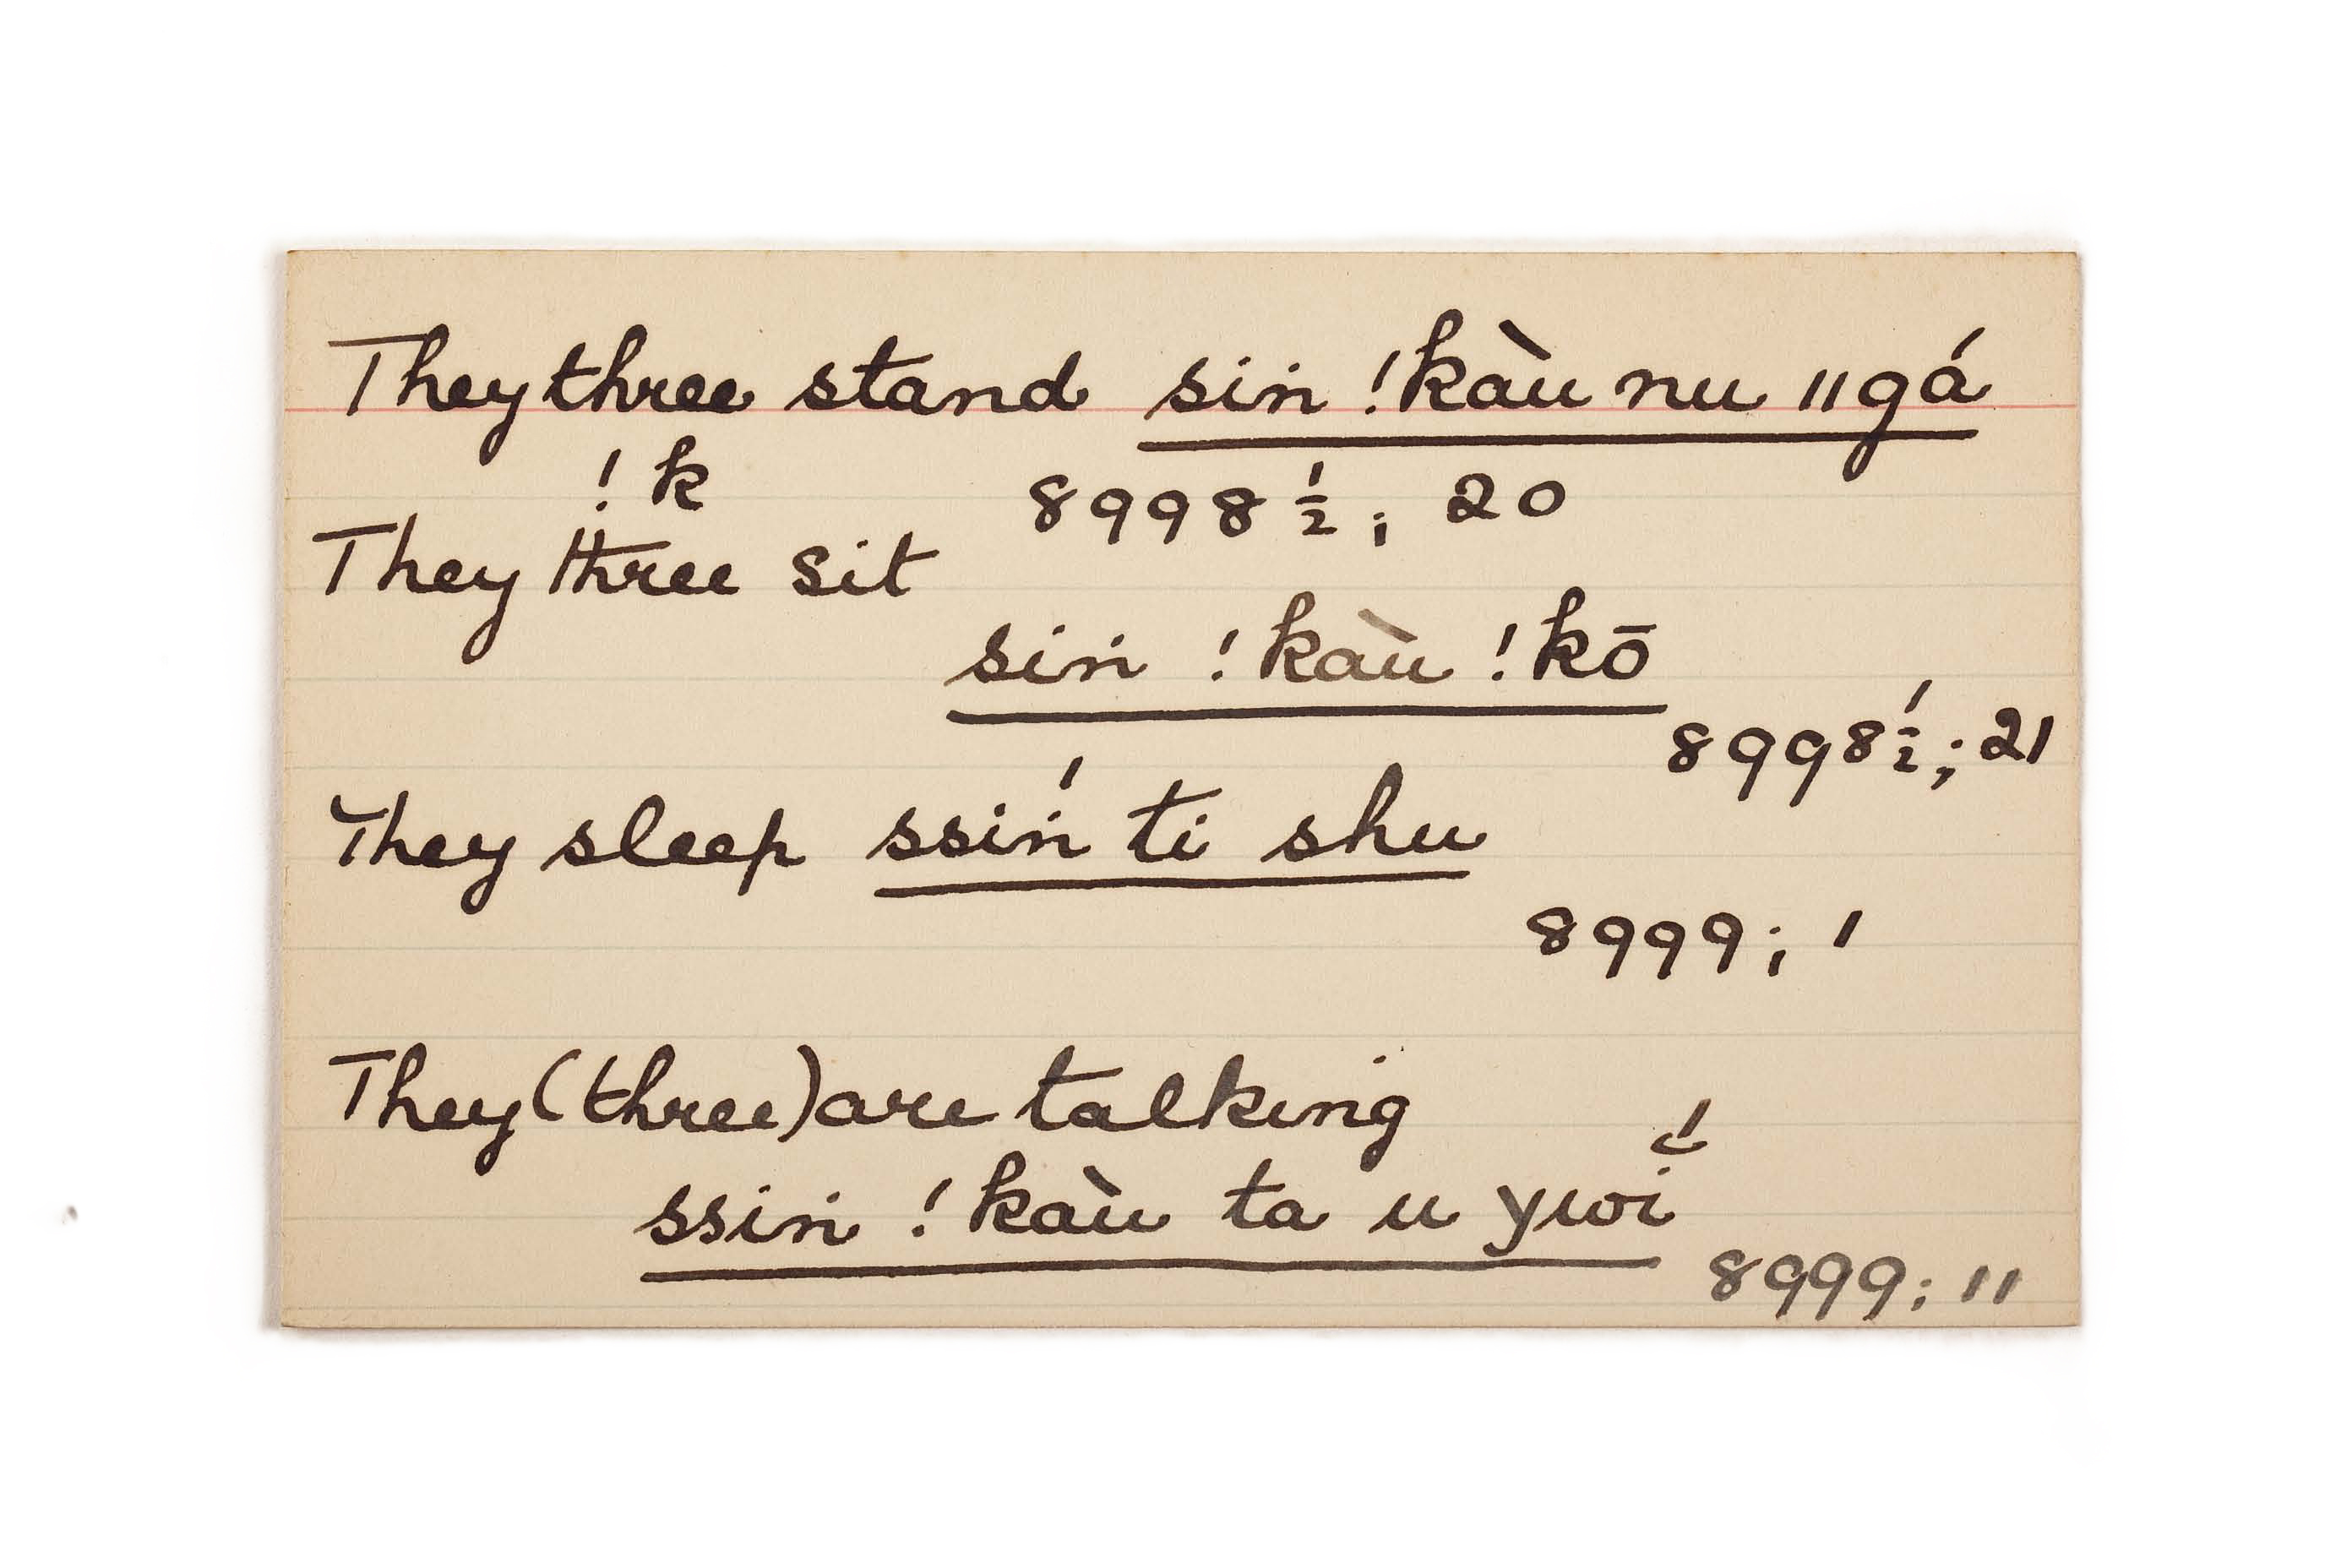 They three stand sin !kàu nu ǁgá
!k 8998½; 20
They three sit
sin !kàu !kō
8998½; 21
They sleep ssiń ti shu
8999; 1
They (three) are talking
ssin !kàu ta u ywĭ́
8999; 11